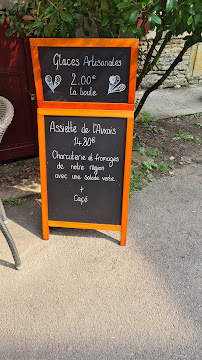 Glaces Artisanales
2.00€
la boule
Assiette de l'Aixois
14.80€
Charcuterie et fromages
de notre région
avec une salade verte.
+
Café